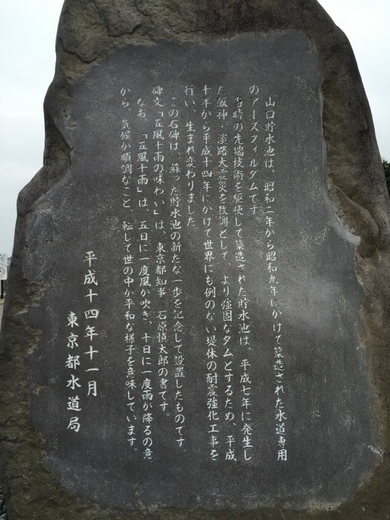 山口貯水池は、昭和二年から昭和九年にかけて築造された水道専用
のアースフィルダムです。
当時の先端技術を駆使して築造された貯水池は、平成七年に発生し
た阪神・淡路大震災を教訓として、より強固なダムとするため、平成
十年から平成十四年にかけて世界にも例のない堤体の耐震強化工事を
行い、生まれ変わりました
この石碑は、蘇った貯水池の新たな一歩を記念して設置したものです
碑文「五風十雨の味わい」は、東京都知事 石原慎太郎の書です。
なお、「五風十雨」は、五日に一度風が吹き、十日に一度雨が降るの意
から、気候が順調なこと、転じて世の中が平和な様子を意味しています。
平成十四年十一月
東京都水道局